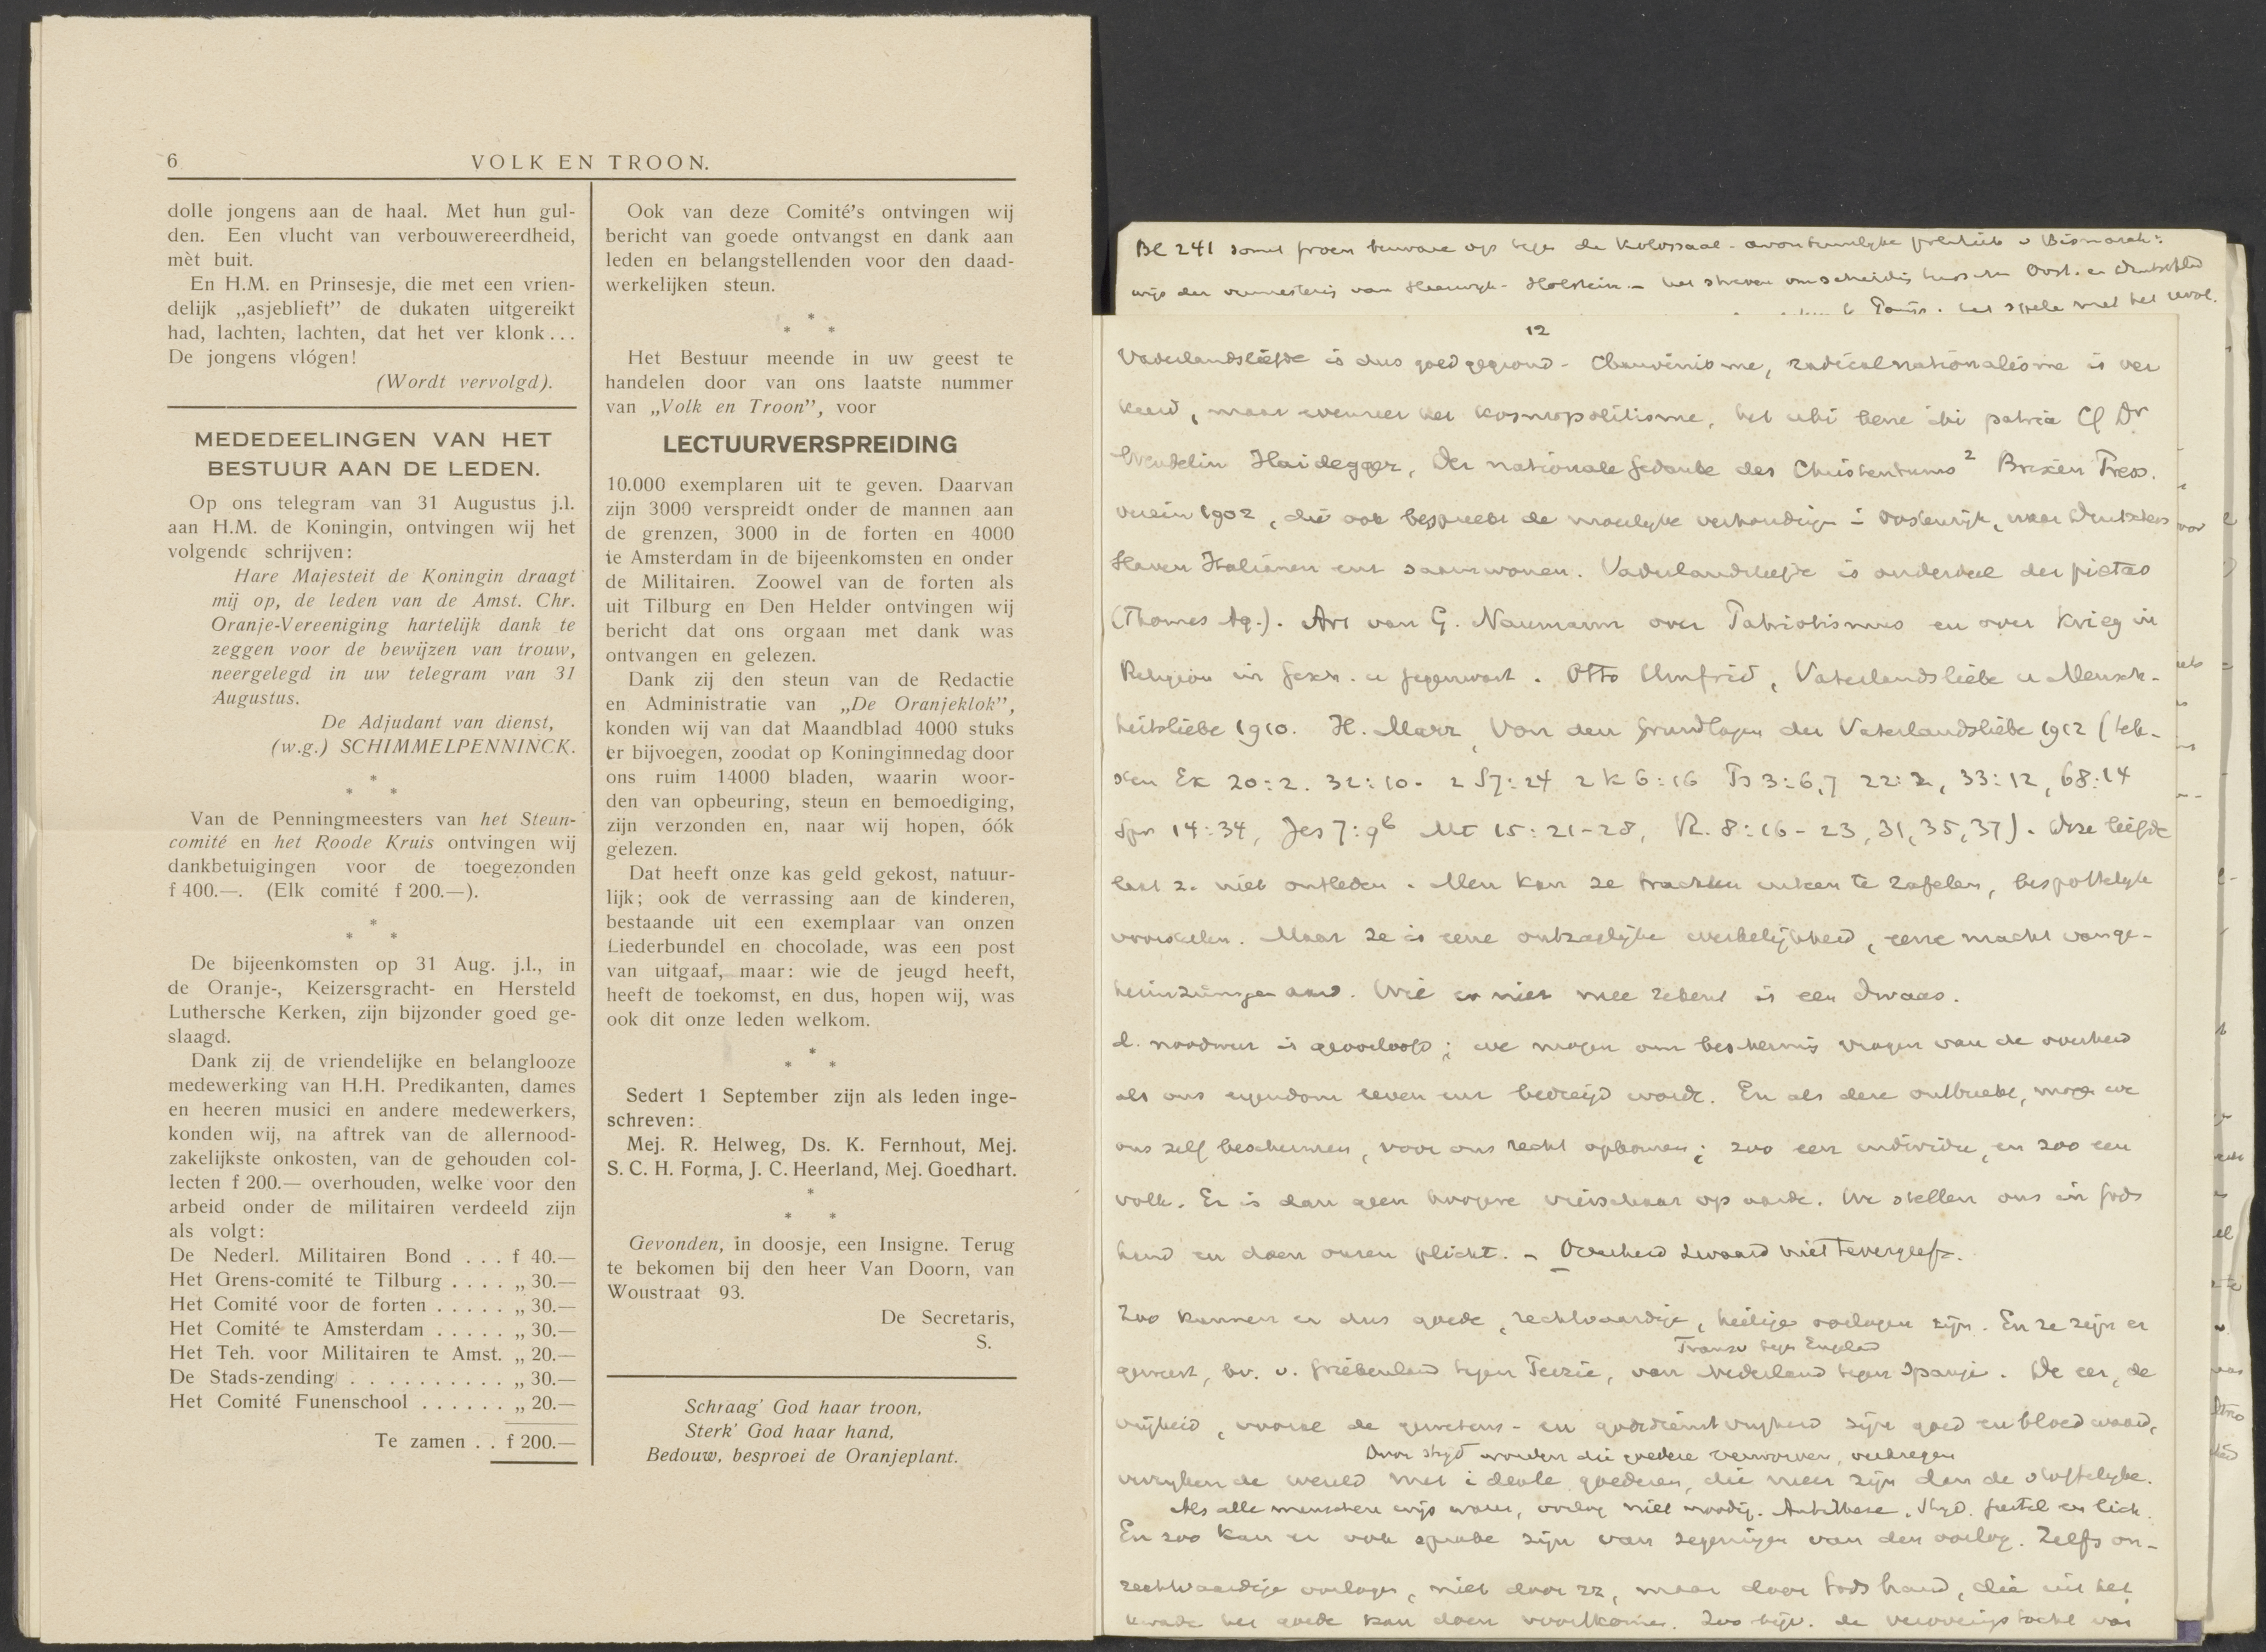 6
VOLK EN TROON.
dolle jongens aan de haal. Met hun gul-
den. Een vlucht van verbouwereerdheid,
mèt buit.
En H.M. en Prinsesje, die met een vrien-
delijk „asjeblieft” de dukaten uitgereikt
had, lachten, lachten, dat het ver klonk...
De jongens vlógen!
(Wordt vervolgd).
MEDEDEELINGEN VAN HET
BESTUUR AAN DE LEDEN.
Op ons telegram van 31 Augustus j.l.
aan H.M. de Koningin, ontvingen wij het
volgende schrijven:
Hare Majesteit de Koningin draagt
mij op, de leden van de Amst. Chr.
Oranje-Vereeniging hartelijk dank te
zeggen voor de bewijzen van trouw,
neergelegd in uw telegram van 31
Augustus.
De Adjudant van dienst,
(w.g.) SCHIMMELPENNINCK.
*
* *
Van de Penningmeesters van het Steun-
comité en het Roode Kruis ontvingen wij
dankbetuigingen voor de toegezonden
f 400.—. (Elk comité f 200.—).
*
* *
De bijeenkomsten op 31 Aug. j.l., in
de Oranje-, Keizersgracht- en Hersteld
Luthersche Kerken, zijn bijzonder goed ge-
slaagd.
Dank zij de vriendelijke en belanglooze
medewerking van H.H. Predikanten, dames
en heeren musici en andere medewerkers,
konden wij, na aftrek van de allernood-
zakelijkste onkosten, van de gehouden col-
lecten f 200.— overhouden, welke voor den
arbeid onder de militairen verdeeld zijn
als volgt:
De Nederl. Militairen Bond . . . f 40.—
Het Grens-comité te Tilburg . . . . „ 30.—
Het Comité voor de forten . . . . . „ 30.—
Het Comité te Amsterdam . . . . . „ 30.—
Het Teh. voor Militairen te Amst. „ 20.—
De Stads-zending . . . . . . . . . . „ 30.—
Het Comité Funenschool . . . . . . „ 20.—
Te zamen . . f 200.—
Ook van deze Comité's ontvingen wij
bericht van goede ontvangst en dank aan
leden en belangstellenden voor den daad-
werkelijken steun.
*
* *
Het Bestuur meende in uw geest te
handelen door van ons laatste nummer
van „Volk en Troon”, voor
LECTUURVERSPREIDING
10.000 exemplaren uit te geven. Daarvan
zijn 3000 verspreidt onder de mannen aan
de grenzen, 3000 in de forten en 4000
te Amsterdam in de bijeenkomsten en onder
de Militairen. Zoowel van de forten als
uit Tilburg en Den Helder ontvingen wij
bericht dat ons orgaan met dank was
ontvangen en gelezen.
Dank zij den steun van de Redactie
en Administratie van „De Oranjeklok”,
konden wij van dat Maandblad 4000 stuks
er bijvoegen, zoodat op Koninginnedag door
ons ruim 14000 bladen, waarin woor-
den van opbeuring, steun en bemoediging,
zijn verzonden en, naar wij hopen, óók
gelezen.
Dat heeft onze kas geld gekost, natuur-
lijk; ook de verrassing aan de kinderen,
bestaande uit een exemplaar van onzen
Liederbundel en chocolade, was een post
van uitgaaf, maar: wie de jeugd heeft,
heeft de toekomst, en dus, hopen wij, was
ook dit onze leden welkom.
*
* *
Sedert 1 September zijn als leden inge-
schreven:
Mej. R. Helweg, Ds. K. Fernhout, Mej.
S. C. H. Forma, J. C. Heerland, Mej. Goedhart.
*
* *
Gevonden, in doosje, een Insigne. Terug
te bekomen bij den heer Van Doorn, van
Woustraat 93.
De Secretaris,
S.
Schraag' God haar troon,
Sterk' God haar hand,
Bedouw, besproei de Oranjeplant.
Bl 241 somt bezware op tegen de kolossaal-avontuurlyke politiek v Bismarck:
van Holstein - het streven om scheiding tusschen Oost. en
12
Vaderlandsliefde is dus goed gegrond - Chauvinisme, radicalnationalisme is ver
keerd, maar evenzeer het kosmopolitisme, het ubi bene ibi patria Cf Dr
Wendelin Haidegger, Der nationale Gedanke des Christentums 2 Brixen Press.
verein 1902, die ook bespreekt de moeilyke verhoudingen i Oostenrijk, waar
Slaven Italianen enz samenwonen. Vaderlandsliefde is onderdeel der pietas
(Thomas Aq.). Art van G. Naumann over Patriotismus en over Krieg in
Religion in Gesch. u Gegenwart. Otto Umfrid, Vaterlandsliebe u Mensch-
heitsliebe 1910. H. Marx, Von den Grundlagen der Vaterlandsliebe 1912 (tek-
sten Ex 20:2. 32:10- 2 S 7:24 2 K 6:16 Ps 3:6,7 22:2, 33:12, 68:14
Spr 14:34, Jes 7:9b Mt 15:21-28, R. 8:16-23, 31, 35, 37). Deze liefde
laat z. niet ontleden. Men kan ze trachten uiteen te rafelen, bespottelyk
voorstellen. Maar ze is eene ontzaglyke werkelijkheid, eene macht van ge-
. Wie er niet mee rekent is een dwaas.
d. noodweer is geoorloofd; we mogen om bescherming vragen van de overheid
als ons eigendom leven enz bedreigd wordt. En als deze ontbreekt, mogen we
ons zelf beschermen, voor ons recht opkomen; zoo een individu, en zoo een
volk. Er is dan geen hoogere vierschaar op aarde. We stellen ons in Gods
hand en doen onzen plicht. - Overheid zwaard niet tevergeefs.
Zoo kunnen er dus goede, rechtvaardige, heilige oorlogen zijn. En ze zijn er
Transv tegen Engeland
geweest, bv. v. Griekenland tegen Perzië, van Nederland tegen Spanje. De eer, de
vrijheid, vooral de gewetens- en godsdienstvryheid zijn goed en bloed waard,
Door strijd worden die goedere verworven, verkregen
verryken de wereld met ideale goederen, die meer zijn dan de stoffelyke.
Als alle menschen wijs waren, oorlog niet noodig. Antithese. Stryd. Geestel en lich.
En zoo kan er ook sprake zijn van zegeningen van den oorlog. Zelfs on-
rechtvaardige oorlogen, niet door zz, maar door Gods hand, die uit het
kwade het goede kan doen voortkomen. Zoo bijv. de veroveringstocht van